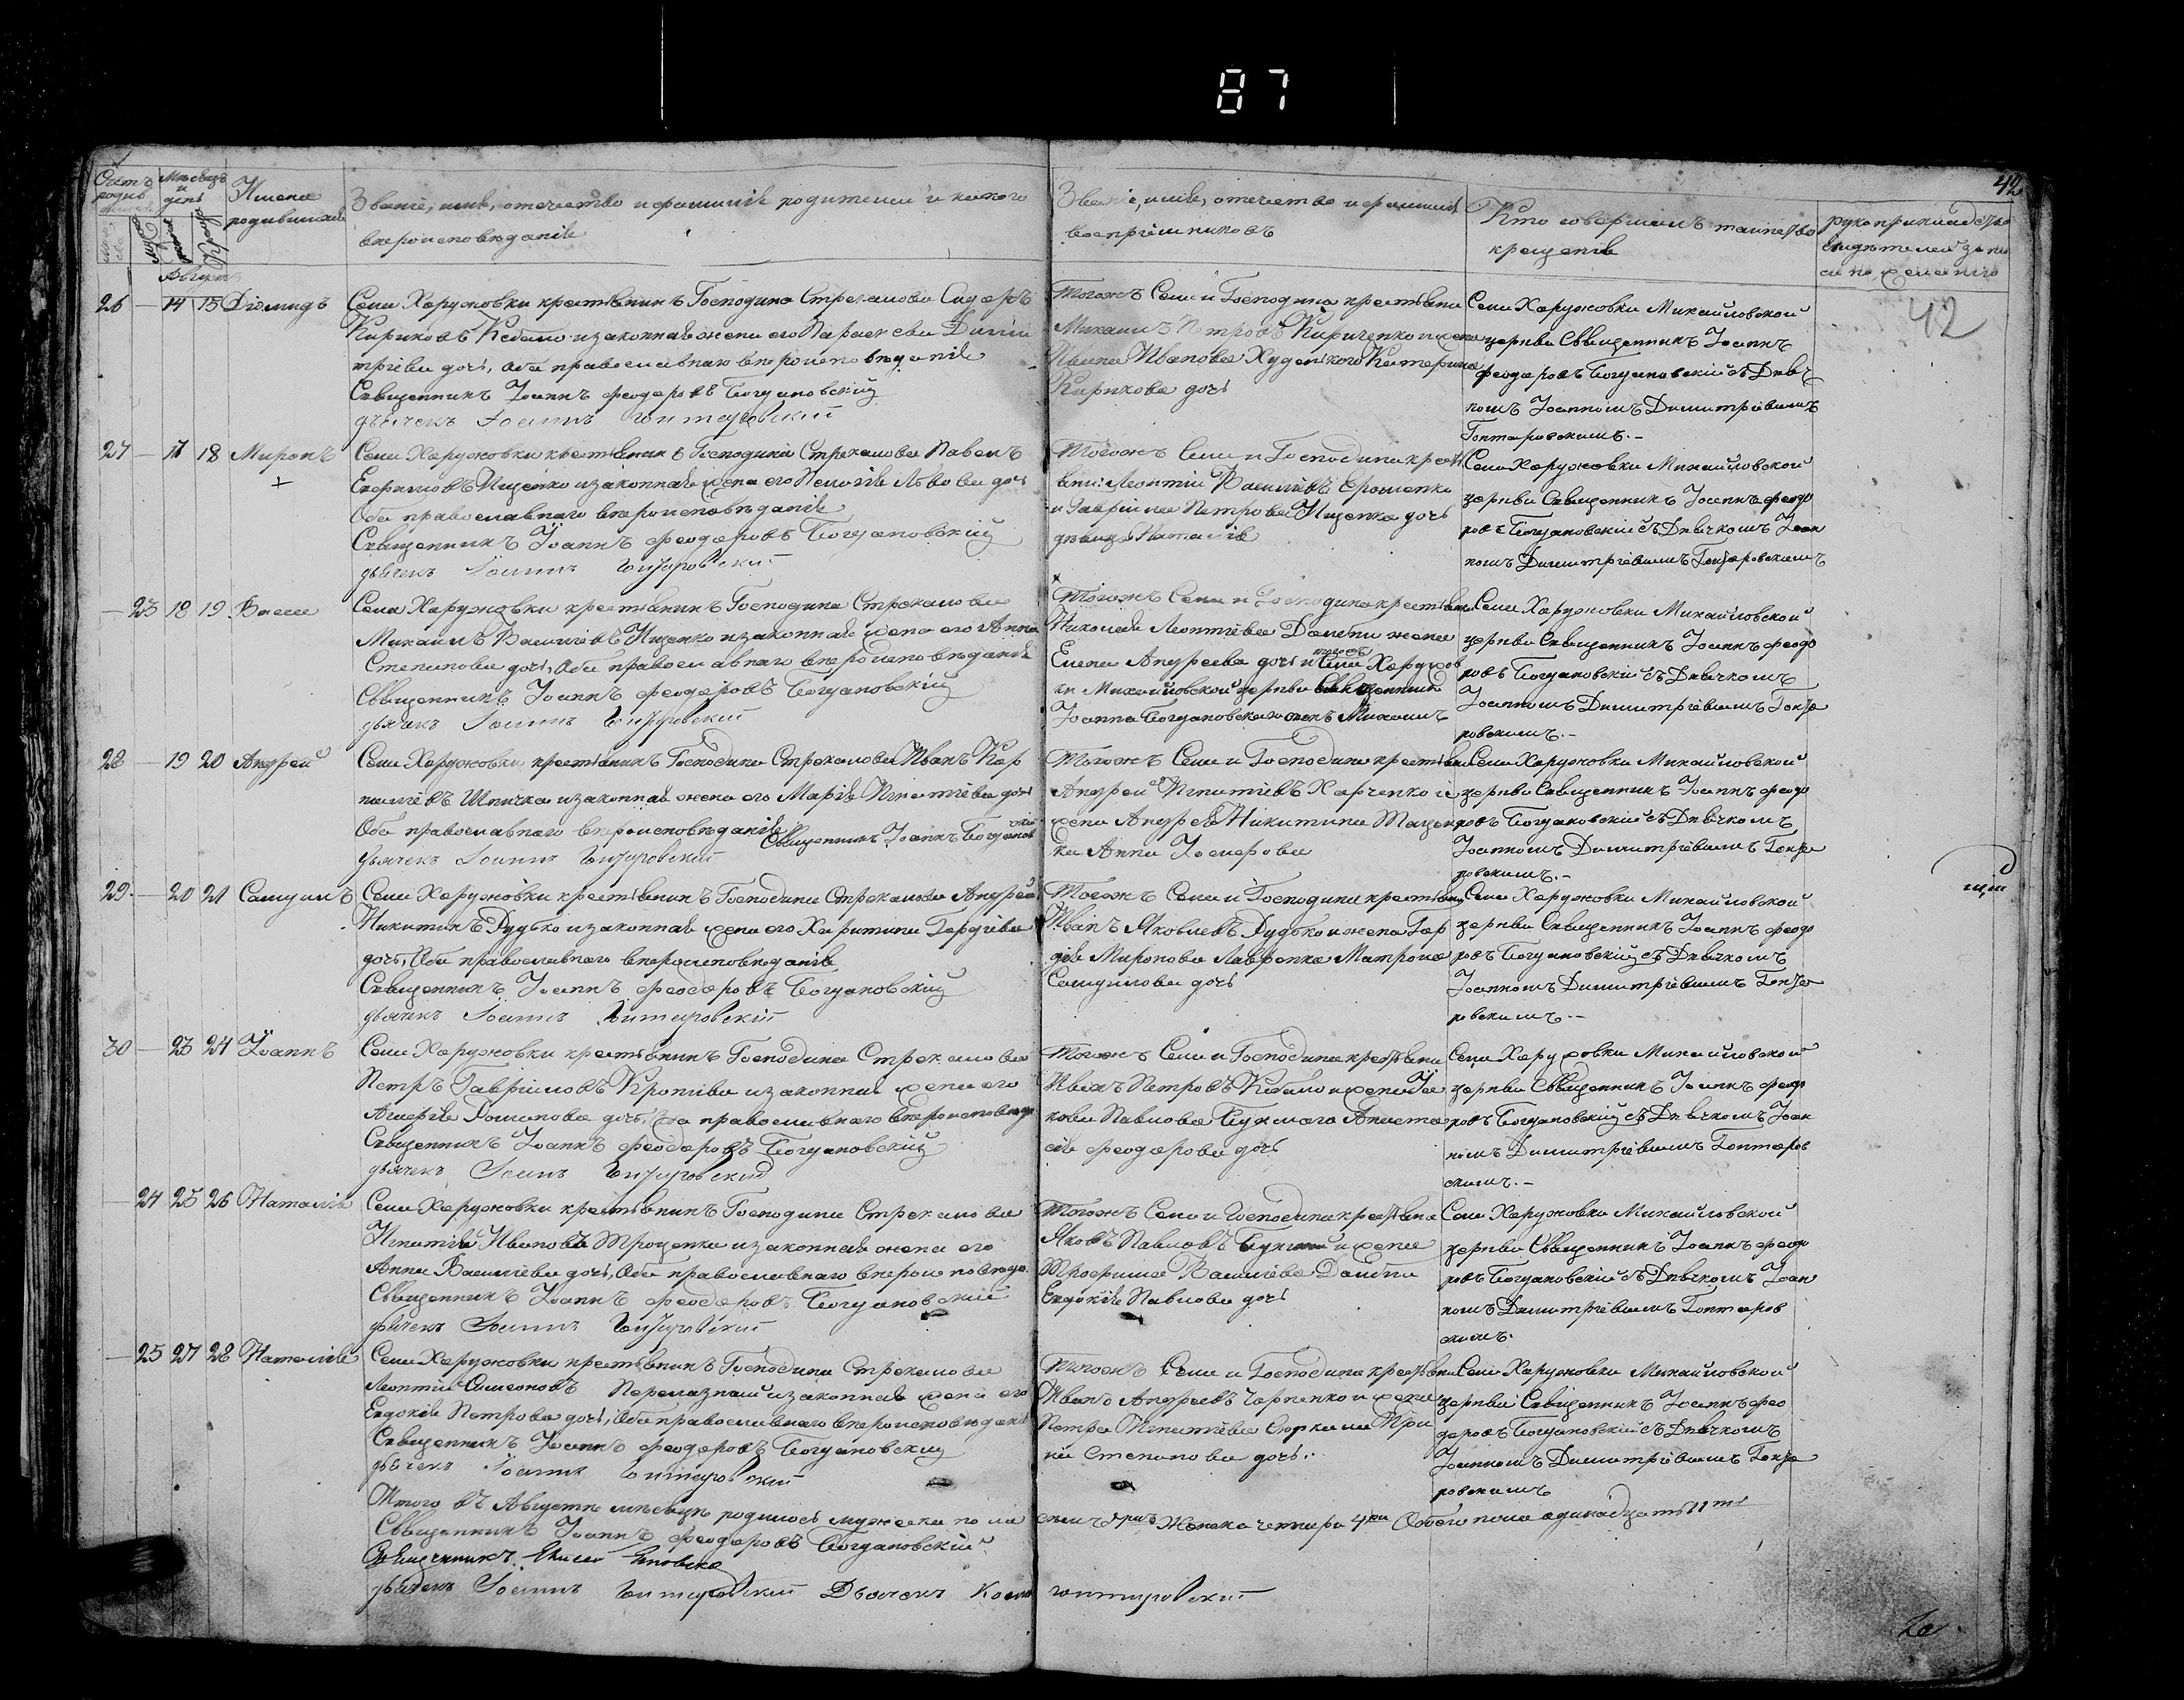 87
42
Счетъ родив
Мѣсяцъ и день
Имена родившихся
Званіе, имя, отечество и фамилія родителей и какого
вѣроисповѣданія
Званіе, имя, отечество и фамилія
воспріемниковъ
Кто совершалъ таинство
крещенія
рукоприкладство
свидѣтелей запи
си по желанію
Августъ
42
26 — 14 15 Діомидъ
Села Харуковки крестьянинъ Господина Стрекалова Сидоръ
Кириковъ Кебало и законная жена его Параскева Дими
тріева дочь, оба православнаго вѣроисповѣданія
Священникъ Іоаннъ Феодоровъ Богдановскій
дьячекъ Іоаннъ Гонтаровскій
Тогожъ Села и Господина крестьяни
Михаилъ Петровъ Кириченко и жена
Ивана Иванова Катерина
Кирикова дочь
Села Харуковки Михайловской
церкви Священникъ Іоаннъ
Феодоровъ Богдановскій съ Дьяч
комъ Іоанномъ Димитріевымъ
Гонтаровскимъ.-
27 — 17 18 Миронъ
+
Села Харуковки крестьянинъ Господина Стрекалова Павелъ
Ефимовъ Ищенко и законная жена его Пелагія Львова дочь
Оба православнаго вѣроисповѣданія
Священникъ Іоаннъ Феодоровъ Богдановскій
дьячекъ Іоаннъ Гонтаровскій
Тогожъ Села и Господина крест
яни: Леонтій Василіевъ Ерошенко
и Гавріила Петрова Ищенка дочь
дѣвица Наталія
Села Харуковки Михайловской
церкви Священникъ Іоаннъ Феодо
ровъ Богдановскій съ Дьячкомъ Іоан
номъ Димитріевымъ Гонтаровскимъ
— 23 18 19 Васса
Села Харуковки крестьянинъ Господина Стрекалова
Михаилъ Василіевъ Ищенко и законная жена его Анна
Степанова дочь, Оба православнаго вѣроисповѣданія
Священникъ Іоаннъ Феодоровъ Богдановскій
дьячекъ Іоаннъ Гонтаровскій
Тогожъ Села и Господина крестьяни
Николая Леонтіева Долбни жена
Елена Андреева дочь и Села Харуков
ки Михайловской церкви Священника
Іоанна Богдановскаго сынъ Михаилъ
Села Харуковки Михайловской
церкви Священникъ Іоаннъ Феодо
ровъ Богдановскій съ Дьячкомъ
Іоанномъ Димитріевымъ Гонта
ровскимъ.-
28 — 19 20 Андрей
Села Харуковки крестьянинъ Господина Стрекалова Иванъ Кар
пиліевъ Шпичка и законная жена его Марія Игнатіева дочь
Оба православнаго вѣроисповѣданія Священникъ Іоаннъ Богданов
скій
дьячекъ Іоаннъ Гонтаровскій
Тогожъ Села и Господина крестьяни
Андрей Игнатіевъ Харченко и
жена Андрея Никитина Тацен
ка Анна Іосифова
Села Харуковки Михайловской
церкви Священникъ Іоаннъ Феодо
ровъ Богдановскій съ Дьячкомъ
Іоанномъ Димитріевымъ Гонта
ровскимъ.-
29. — 20 21 Самуилъ
Села Харуковки крестьянинъ Господина Стрекалова Андрей
Никитинъ Дудько и законная жена его Харитина Гордіева
дочь, Оба православнаго вѣроисповѣданія
Священникъ Іоаннъ Феодоровъ Богдановскій
дьячекъ Іоаннъ Гонтаровскій
Тогожъ Села и Господина крестьяни
Иванъ Яковлевъ Дудько и жена Гор
дія Миронова Лавренка Матрона
Самуилова дочь
Села Харуковки Михайловской
церкви Священникъ Іоаннъ Феодо
ровъ Богдановскій съ Дьячкомъ
Іоанномъ Димитріевымъ Гонта
ровскимъ.-
30 — 23 24 Іоаннъ
Села Харуковки крестьянинъ Господина Стрекалова
Петръ Гавріиловъ Кропива и законная жена его
Агафія Романова дочь, Оба православнаго вѣроисповѣда
Священникъ Іоаннъ Феодоровъ Богдановскій
дьячекъ Іоаннъ Гонтаровскій
Тогожъ Села и Господина крестьяни
Иванъ Петровъ Кебало и жена Іа
кова Павлова Анаста
сія Феодорова дочь
Села Харуковки Михайловской
церкви Священникъ Іоаннъ Феодо
ровъ Богдановскій съ Дьячкомъ Іоан
номъ Димитріевымъ Гонтаров
скимъ.-
— 24 25 26 Наталія
Села Харуковки крестьянинъ Господина Стрекалова
Игнатій Ивановъ Троценко и законная жена его
Анна Василіева дочь, Оба православнаго вѣроисповѣда
Священникъ Іоаннъ Феодоровъ Богдановскій
дьячекъ Іоаннъ Гонтаровскій
Тогожъ Села и Господина крестьяни
Яковъ Павловъ и жена
Трофима Василіева Долбни
Евдокія Павлова дочь
Села Харуковки Михайловской
церкви Священникъ Іоаннъ Феодо
ровъ Богдановскій съ Дьячкомъ Іоан
номъ Димитріевымъ Гонтаров
скимъ.
— 25 27 28 Наталія
Села Харуковки крестьянинъ Господина Стрекалова
Леонтій Симеоновъ и законная жена его
Евдокія Петрова дочь, Оба православнаго вѣроисповѣдані
Священникъ Іоаннъ Феодоровъ Богдановскій
дьячекъ Іоаннъ Гонтаровскій
Тогожъ Села и Господина крестьяни
Иванъ Андреевъ Черненко и жена
Петра Игнатіева Ири
на Степанова дочь.
Села Харуковки Михайловской
церкви Священникъ Іоаннъ Фео
доровъ Богдановскій съ Дьячкомъ
Іоанномъ Димитріевымъ Гонта
ровскимъ
Итого въ Августѣ мѣсяцѣ родилось мужеска пола
семь Женска четыре 4ри Обоего пола одинадцать 11ть
Священникъ Іоаннъ Феодоровъ Богдановскій
Священникъ
дьячекъ Іоаннъ Гонтаровскій Дьячекъ Косма Гонтаровскій